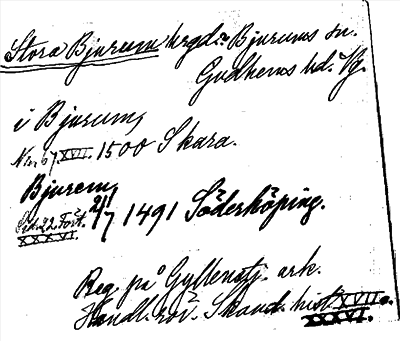 Stora Bjurum hrgd. Bjurums sn.
Gudhems hd. Vg.
i Bjurum,
N:o 67. XVII. 1500 Skara.
Bjurem,
Sid. 22. Fört. 2/7 1491 Söderköping.
XXXVI.
Reg. på Gyllenstj. ark.
Handl. rör. Skand. hist. XVII o.
XXXVI.